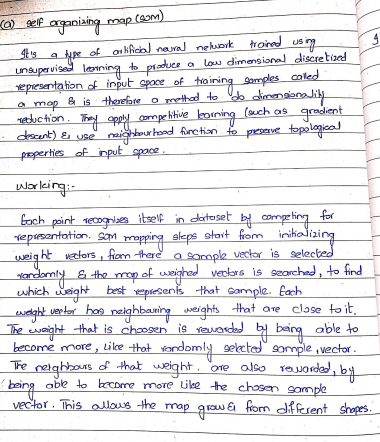 (a) self organising map (SOM)
It's a type of artificial neural network trained using
unsupervised learning to produce a low dimensional discretized
representation of input space of training samples called
a map & is therefore a method to do dimensionality
reduction. They apply competitive learning (such as gradient
descent) & use neighbourhood function to preserve topological
properties of input space.
Working:-
Each point recognises itself in dataset by competing for
representation. SOM mapping steps start from initializing
weight vectors, from there a sample vector is selected
randomly & the map of weighed vectors is searched, to find
which weight best represents that sample. Each
weight vector has neighbouring weights that are close to it.
The weight that is choosen is rewarded by being able to
become more, like that randomly selected sample, vector.
The neighbours of that weight. are also rewarded, by
being able to become more like the chosen sample
vector. This allows the map grow & from different shapes.